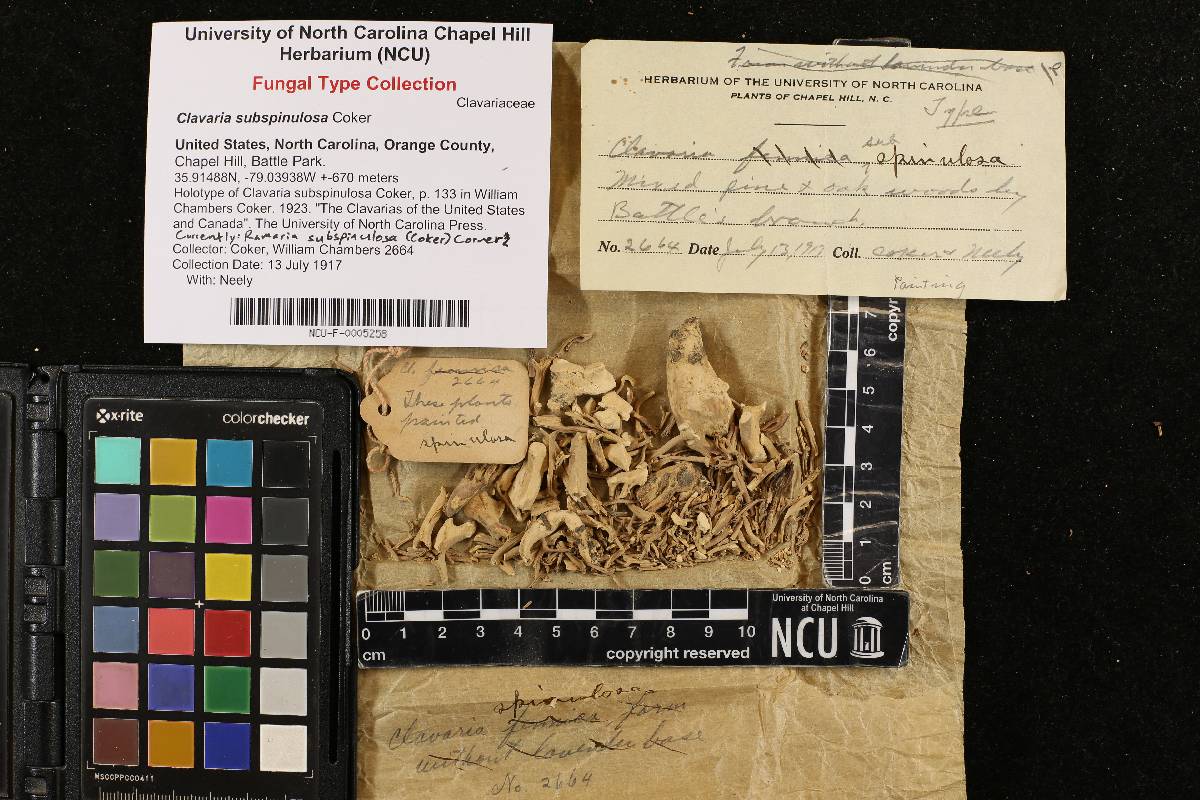 University of North Carolina Chapel Hill
Herbarium (NCU)
Fungal Type Collection
Clavariaceae
Clavaria subspinulosa Coker
United States, North Carolina, Orange County,
Chapel Hill, Battle Park.
35.91488N, -79.03938W +-670 meters
Holotype of Clavaria subspinulosa Coker, p. 133 in William
Chambers Coker. 1923. "The Clavarias of the United States
and Canada". The University of North Carolina Press.
Currently: Ramaria subspinulosa (Coker) Corner
Collector: Coker, William Chambers 2664
Collection Date: 13 July 1917
With: Neely
NCU-F-0005258
Form without lavender base
HERBARIUM OF THE UNIVERSITY OF NORTH CAROLINA
PLANTS OF CHAPEL HILL, N. C.
Type
Clavaria formosa sub spinulosa
Mixed pine & oak woods by
Battle's branch
No. 2664 Date July 13, 1917 Coll. Coker & Neely
Painting
Cl. formosa
2664
These plants
painted
spinulosa
x-rite colorchecker
MSCCPPCC0411
7
6
5
4
3
2
1
0
cm
copyr
0 1 2 3 4 5 6 7 8 9 10
cm
copyright reserved
University of North Carolina
at Chapel Hill
NCU
spinulosa
Clavaria formosa form
without lavender base
No. 2664